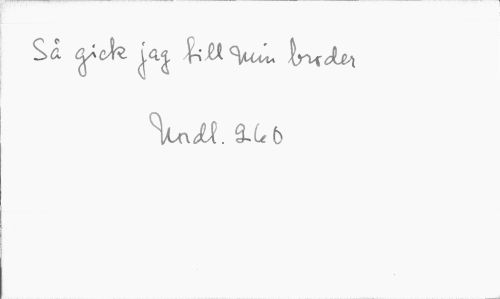 Så gick jag till min broder
Nordl. 260